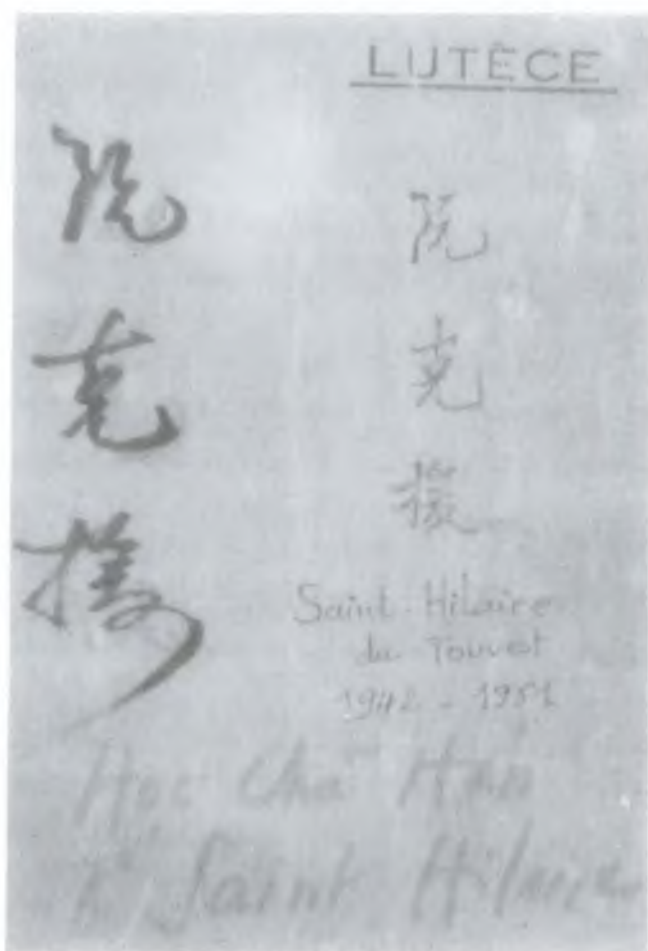 LUTÈCE
阮克援
阮克援
Saint-Hilaire
du Touvet
1942 - 1951
Học chữ Hán
ở Saint Hilaire